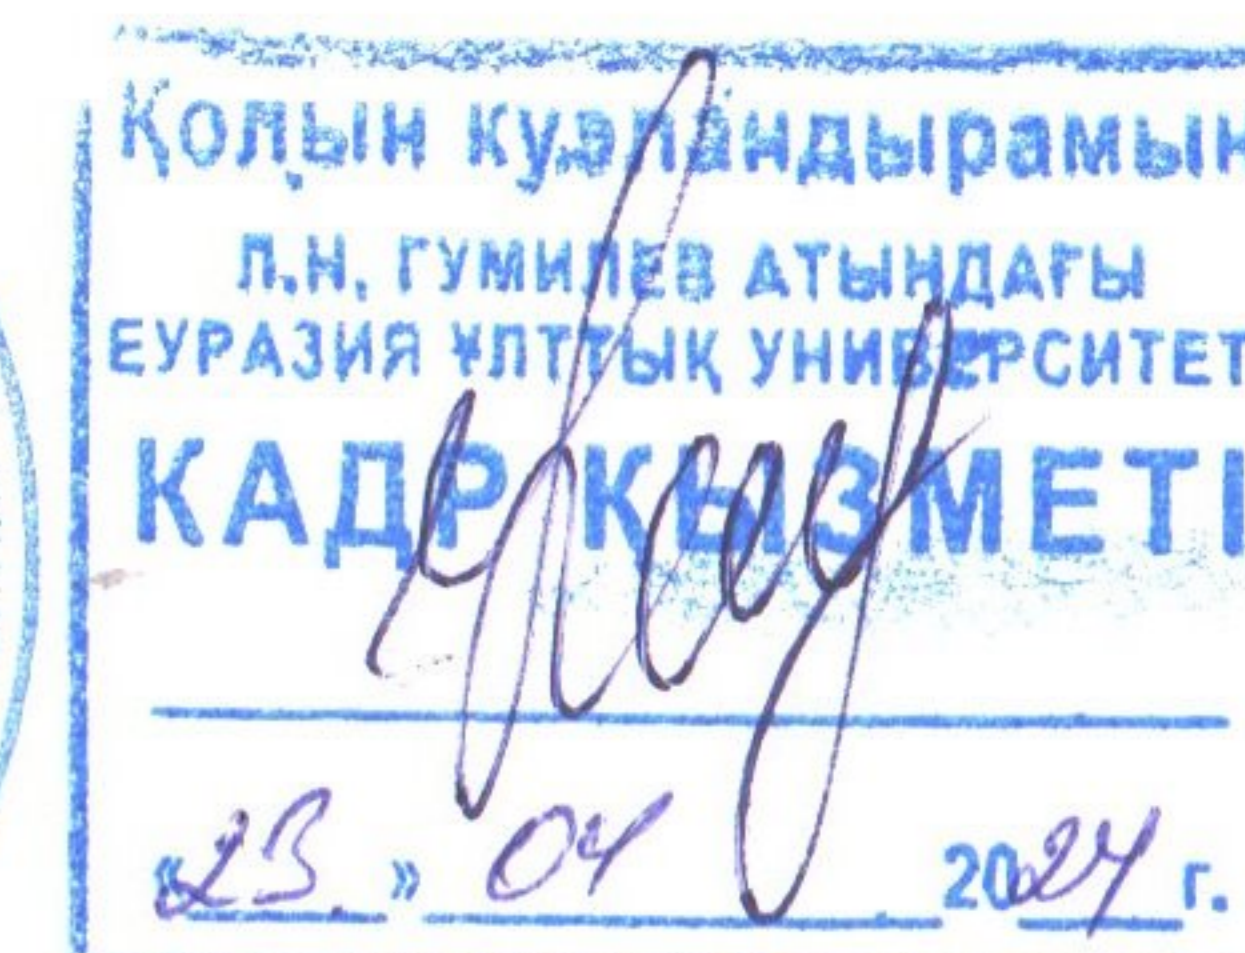 Қолын куәландырамын
Л.Н. ГУМИЛЕВ АТЫНДАҒЫ
ЕУРАЗИЯ ҰЛТТЫҚ УНИВЕРСИТЕТ
КАДР ҚЫЗМЕТІ
«23» 04 2024 г.